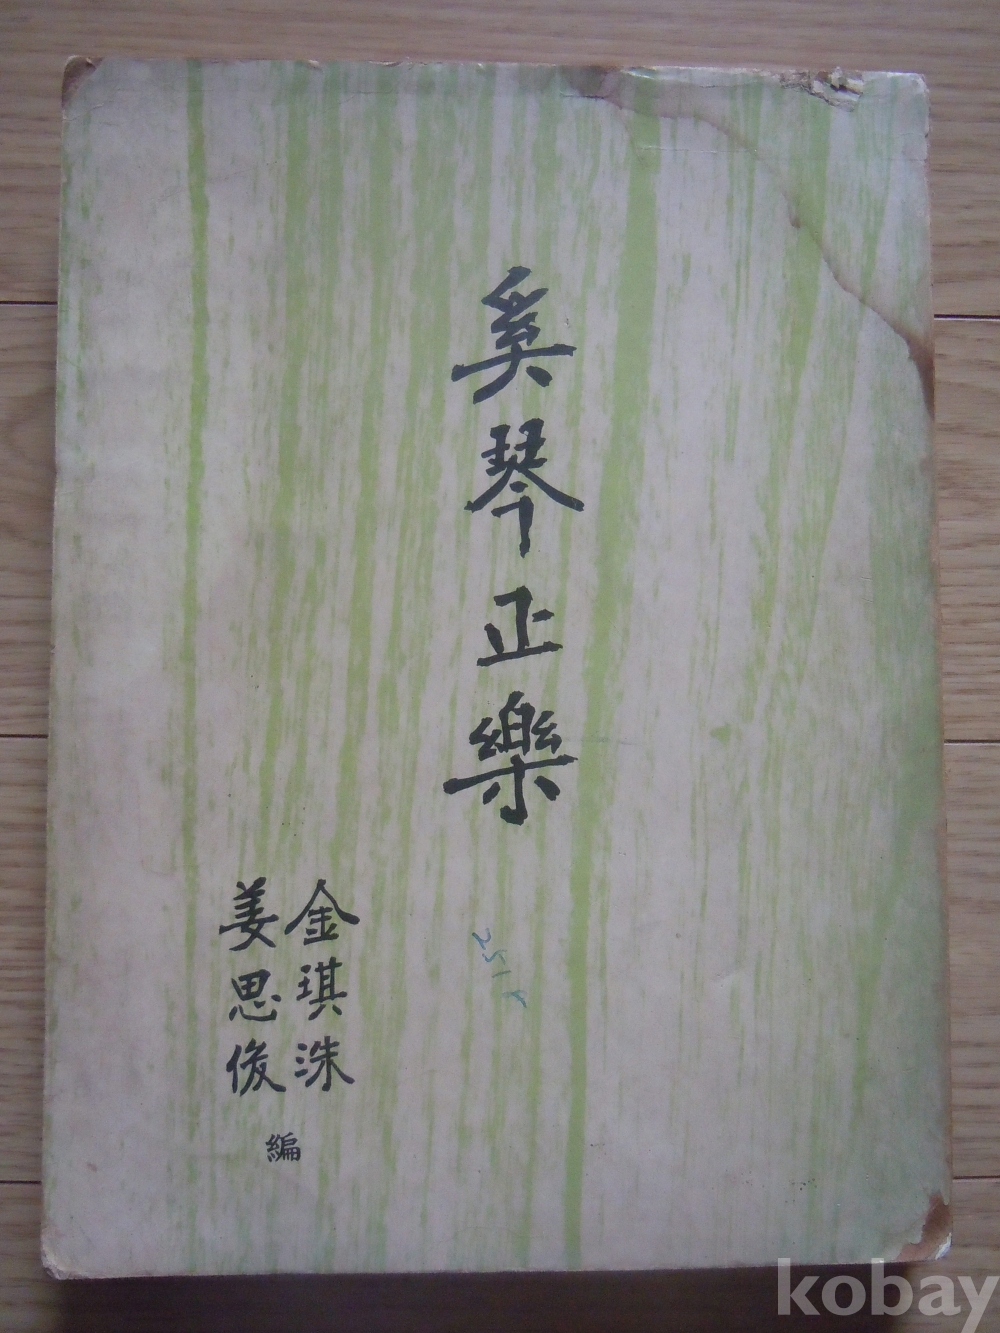 奚琴正樂
金琪洙
姜思俊
編
kobay